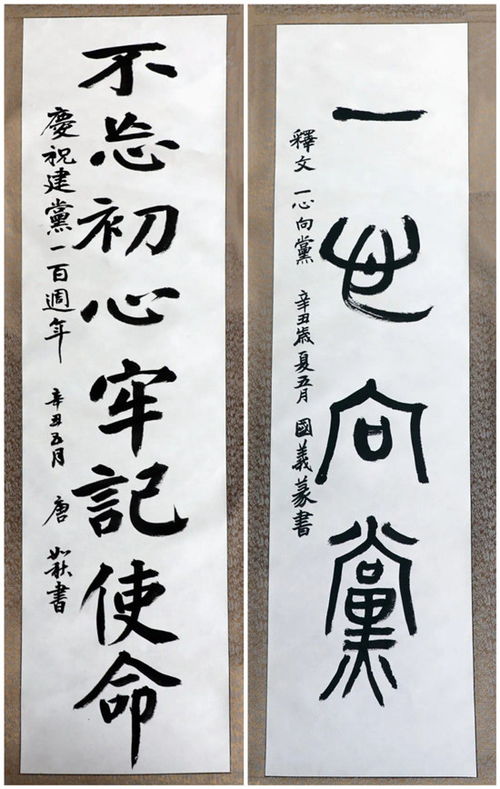 不忘初心牢記使命
慶祝建黨一百週年 辛丑五月 唐如秋書
一心向黨
釋文 一心向黨 辛丑歲夏五月 國義篆書